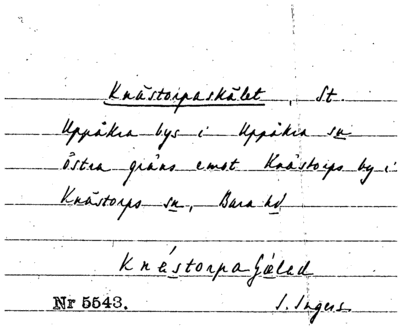 Knästorpaskälet, St.
Uppåkra bys i Uppåkra sn
östra gräns emot Knästorps by i
Knästorps sn, Bara hd
Knästorpa
Nr 5543. I. Ingers.